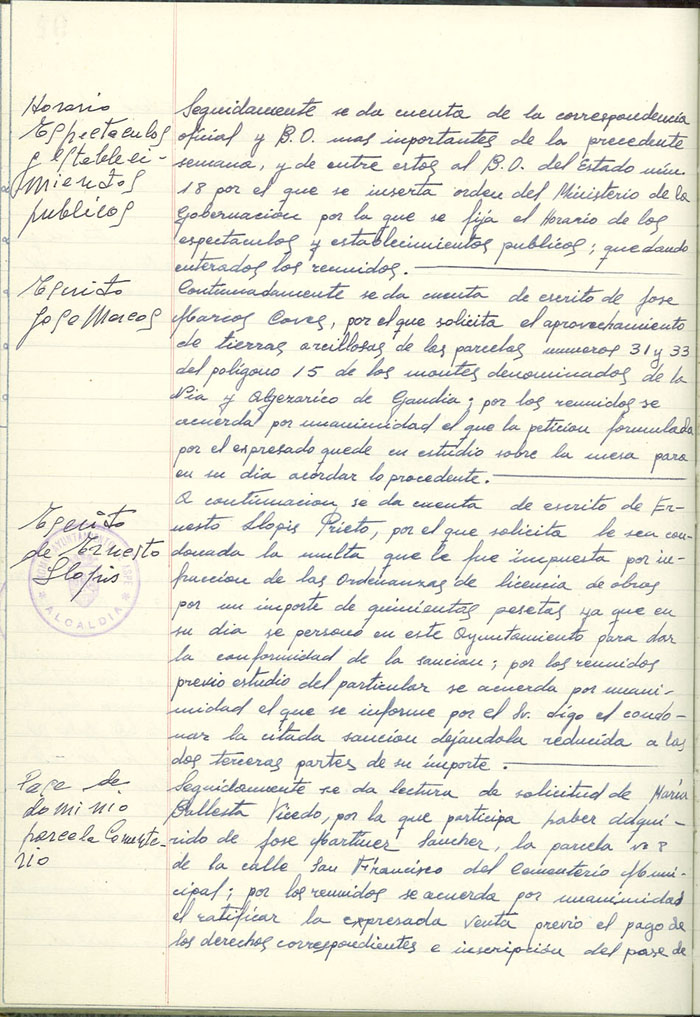 Horario
Espectaculos
y estableci-
mientos
publicos
Seguidamente se da cuenta de la correspondencia
oficial y B.O. mas importantes de la precedente
semana, y de entre estos al B.O. del Estado núm
18 por el que se inserta orden del Ministerio de la
Gobernación por la que se fija el Horario de los
espectaculos y establecimientos publicos; quedando
enterados los reunidos.
Escrito
Jose Marcos
Continuadamente se da cuenta de escrito de Jose
Marcos Caves, por el que solicita el aprovechamiento
de tierras arcillosas de las parcelas numeros 31 y 33
del poligono 15 de los montes denominados de la
Nia y Algezarico de Gandia; por los reunidos se
acuerda por unanimidad el que la peticion formulada
por el expresado quede en estudio sobre la mesa para
en su dia acordar lo procedente.
Escrito
de Ernesto
Slopis
AYUNTAMIENTO
ASPE
ALCALDIA
A continuacion se da cuenta de escrito de Er-
nesto Slopis Prieto, por el que solicita le sea con-
donada la multa que le fue impuesta por in-
fraccion de las Ordenanzas de licencia de obras
por un importe de quinientas pesetas ya que en
su dia se persono en este Ayuntamiento para dar
la conformidad de la sancion; por los reunidos
previo estudio del particular se acuerda por unani-
midad el que se informe por el Sr. digo el condo-
nar la citada sancion dejandola reducida a las
dos terceras partes de su importe.
Pase de
dominio
parcela Cemente-
rio
Seguidamente se da lectura de solicitud de María
Ballesta Vicedo, por la que participa haber adqui-
rido de Jose Martinez Sanchez, la parcela nº 8
de la calle San Francisco del Cementerio Muni-
cipal; por los reunidos se acuerda por unanimidad
el ratificar la expresada venta previo el pago de
los derechos correspondientes e inscripción del pase de